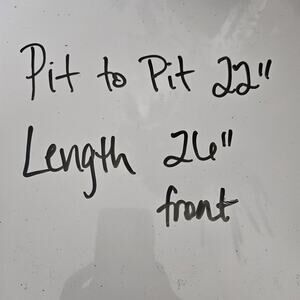 Pit to Pit 22"
Length 26"
front